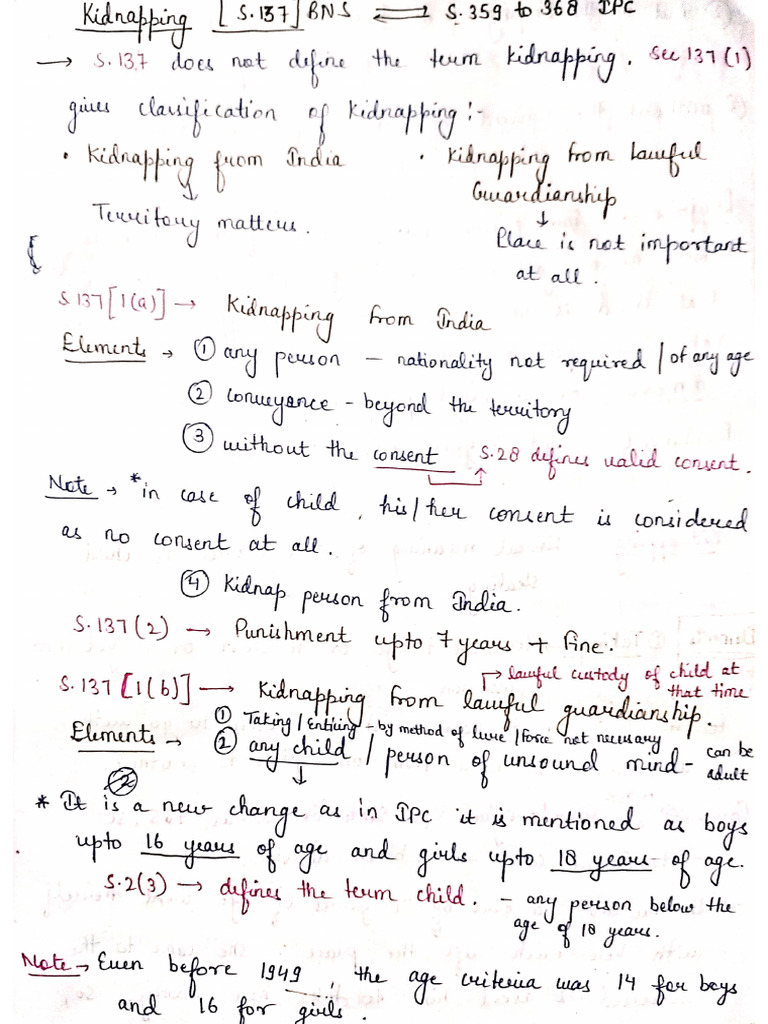 Kidnapping [S.137] BNS ⇌ S.359 to 368 IPC
→ S.137 does not define the term kidnapping. Sec 137(1)
gives classification of kidnapping :-
• Kidnapping from India
↓
Territory matters.
• Kidnapping from Lawful
Guardianship
↓
Place is not important
at all.
S.137[1(a)] → Kidnapping from India
Elements → ① any person – nationality not required / of any age
② conveyance – beyond the territory
③ without the consent S.28 defines valid consent.
Note → *in case of child, his/her consent is considered
as no consent at all.
④ Kidnap person from India.
S.137(2) → Punishment upto 7 years + fine.
lawful custody of child at
that time
S.137[1(b)] → Kidnapping from lawful guardianship.
Elements → ① Taking/Enticing – by method of lure / force not necessary
② any child / person of unsound mind – can be
adult
* It is a new change as in IPC it is mentioned as boys
upto 16 years of age and girls upto 18 years of age.
S.2(3) → defines the term child. – any person below the
age of 18 years.
Note → Even before 1949, the age criteria was 14 for boys
and 16 for girls.